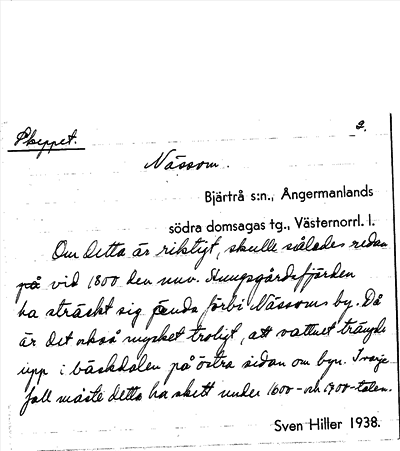 Skeppet.
2.
Nässom.
Bjärtrå s:n., Ångermanlands
södra domsagas tg., Västernorrl. l.
Om detta är riktigt, skulle således redan
på vid 1800 den nuv. Kungsgårdsfjärden
ha sträckt sig ända förbi Nässoms by. Då
är det också mycket troligt, att vattnet trängde
upp i bäckdalen på östra sidan om byn. I varje
fall måste detta ha skett under 1600- och 1700-talen.
Sven Hiller 1938.